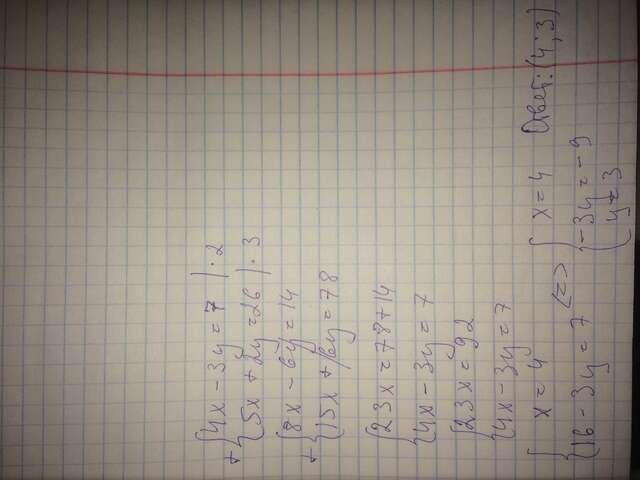 {4x - 3y = 7 | · 2
+ {5x + 2y = 26 | · 3
{8x - 6y = 14
+ {15x + 6y = 78
{23x = 78 + 14
{4x - 3y = 7
{23x = 92
{4x - 3y = 7
{x = 4
{16 - 3y = 7 <=> {x = 4
{-3y = -9
y = 3
Ответ: (4; 3)